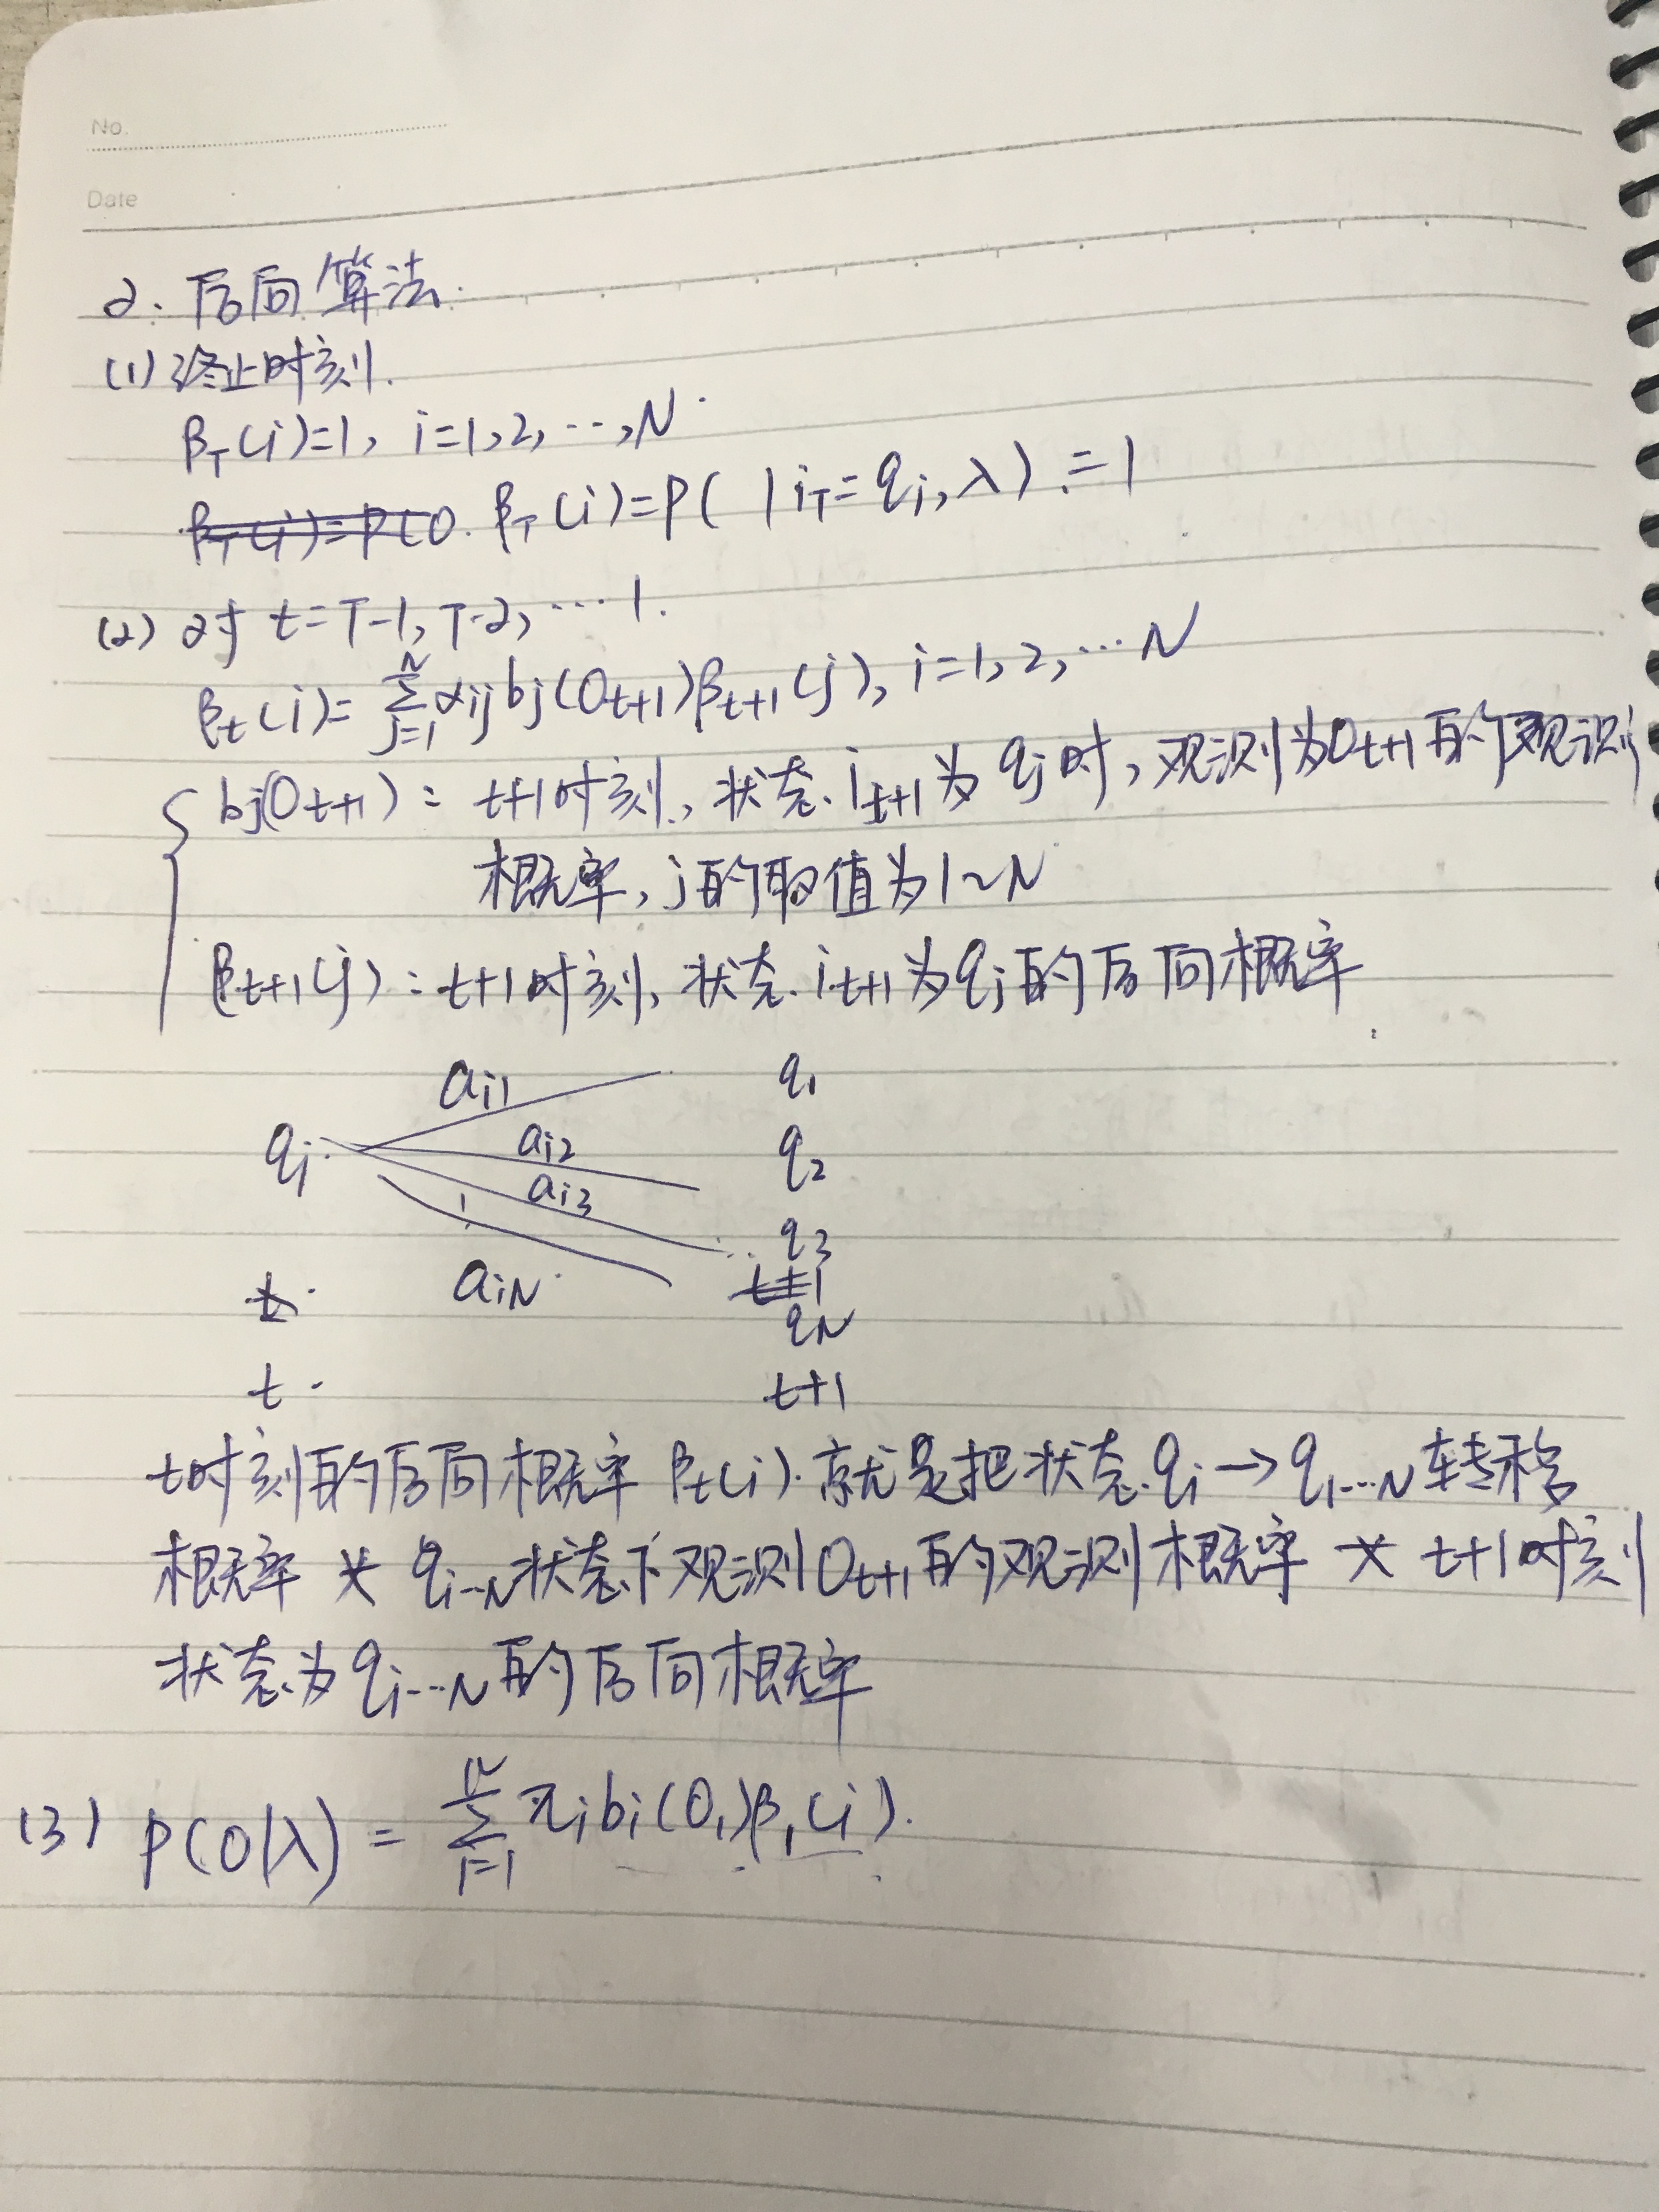 No.
Date
2. 后向算法.
(1) 终止时刻.
β_T(i)=1, i=1,2,…,N.
β_T(i)=P(O. β_T(i)=P( | i_T=q_i, λ)=1
(2) 对 t=T-1, T-2, …1.
β_t(i)=∑_{j=1}^{N} α_ij b_j(O_{t+1})β_{t+1}(j), i=1,2,…N
{ b_j(O_{t+1}): t+1时刻, 状态 i_{t+1} 为 q_j 时, 观测为O_{t+1}的观测
概率, j的取值为1~N
β_{t+1}(j): t+1时刻, 状态 i_{t+1} 为 q_j 的后向概率
a_{i1} q_1
q_i a_{i2} q_2
a_{i3} q_3
t a_{iN} t+1
q_N
t t+1
t时刻的后向概率 β_t(i) 就是把状态 q_i → q_{1…N} 转移
概率 × q_{i…N}状态下观测O_{t+1}的观测概率 × t+1时刻
状态为 q_{i…N} 的后向概率
(3) P(O|λ) = ∑_{i=1}^{N} π_i b_i(O_1)β_1(i).